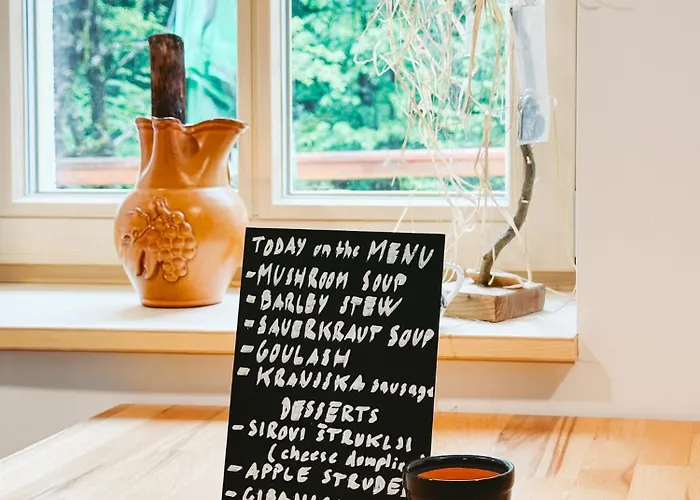 TODAY on the MENU
- MUSHROOM SOUP
- BARLEY STEW
- SAUERKRAUT SOUP
- GOULASH
- KRANJSKA sausage
DESSERTS
- SIROVI ŠTRUKLJI
(cheese dumplin
- APPLE STRUDE